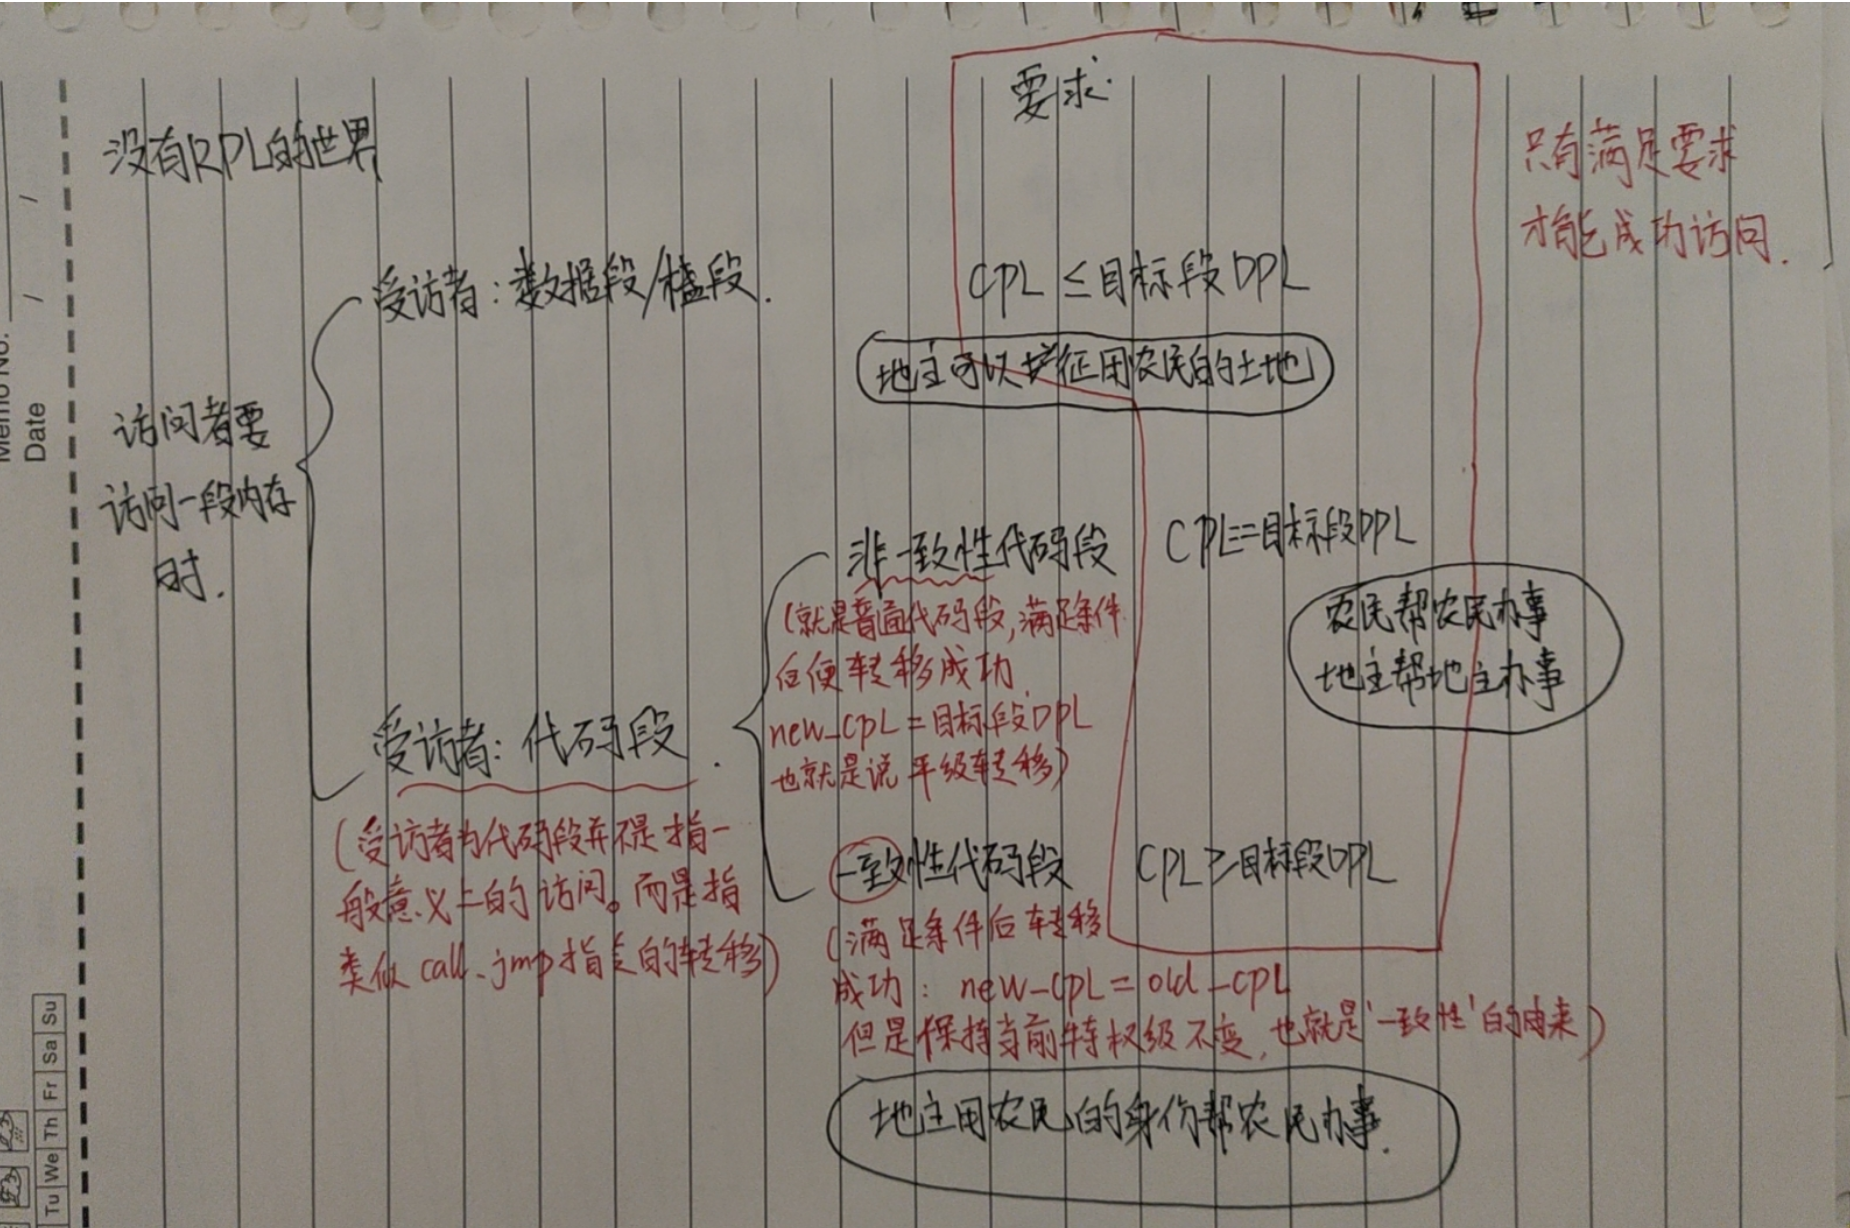 要求.
没有RPL的世界
只有满足要求
才能成功访问.
受访者:数据段/栈段.
CPL≤目标段DPL
地主可以征用农民的土地
访问者要
访问一段内存
时.
非一致性代码段
CPL==目标段DPL
(就是普通代码段,满足条件
后便转移成功.
new_CPL=目标段DPL
也就是说平级转移)
农民帮农民办事
地主帮地主办事
受访者:代码段.
(受访者为代码段并不是指一
般意义上的访问。而是指
类似call、jmp指令的转移)
一致性代码段
CPL≥目标段DPL
(满足条件后转移
成功: new_CPL=old_CPL
但是保持当前特权级不变,也就是'一致性'的由来)
地主用农民的身份帮农民办事.
Memo No.
Date / /
Tu We Th Fr Sa Su